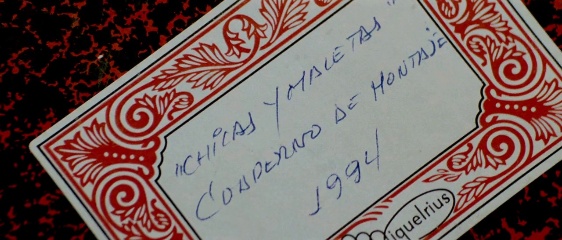 "CHICAS Y MALETAS"
CUADERNO DE MONTAJE
1994
Miquelrius